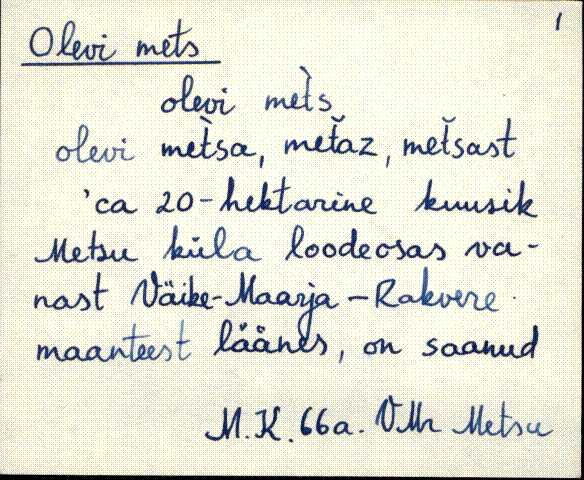 1
Olevi mets
olevi met̀s
olevi met̀sa, met̆az, met̆sast
'ca 20-hektarine kuusik
Metsu küla loodeosas va-
nast Väike-Maarja-Rakvere
maanteest läänes, on saanud
M.K. 66a. VMr Metsu